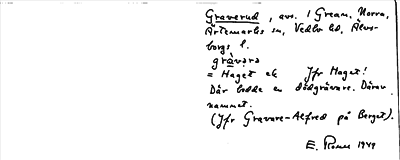 Graverud, avs. i Gream. Norra,
Ärtemarks sn, Vedbo hd, Älvs-
borgs l.
gràvarə
= Haget ek Jfr Haget!
Där bodde en dödgrävare. Därav
namnet.
(Jfr Gravare-Alfred på Berget).
E. 1949